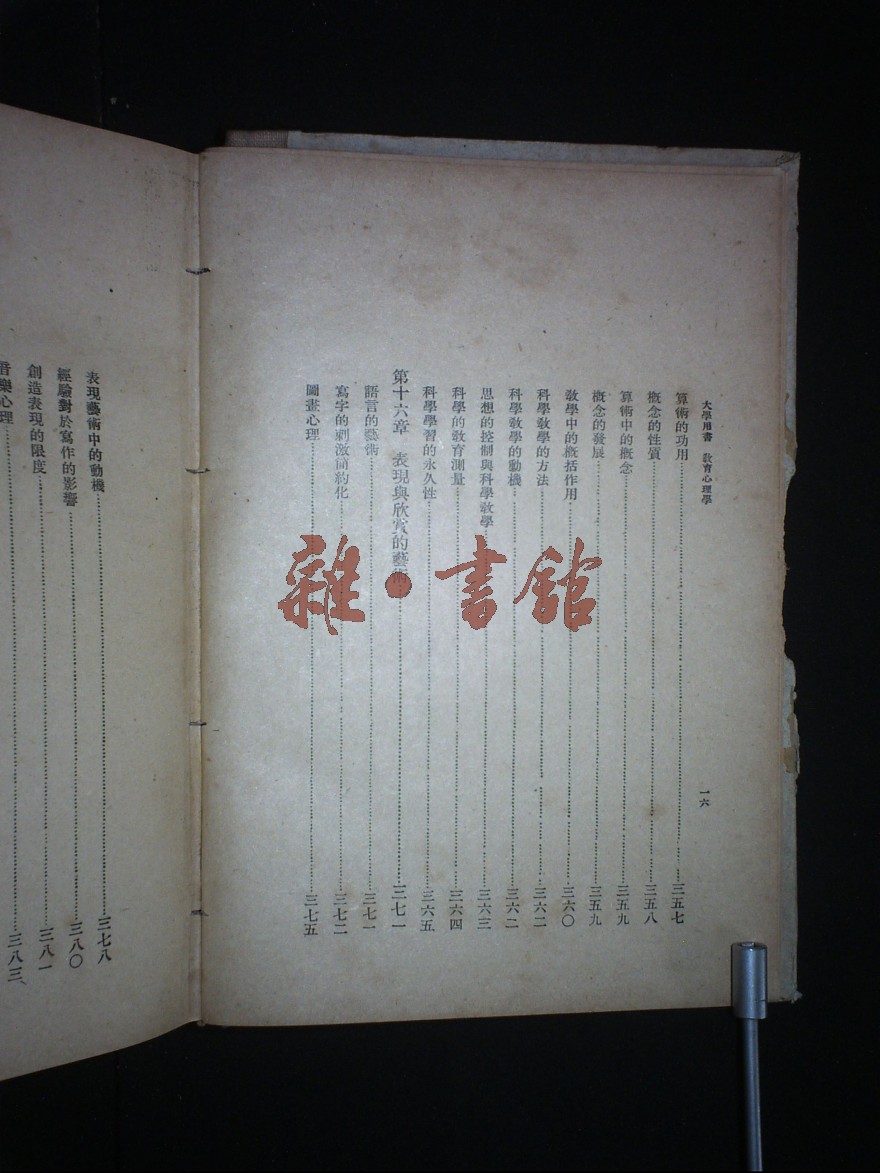 大學用書 教育心理學
一六
算術的功用 三五七
概念的性質 三五八
算術中的概念 三五九
概念的發展 三五九
敎學中的概括作用 三六〇
科學敎學的方法 三六二
科學敎學的動機 三六二
思想的控制與科學敎學 三六三
科學的敎育測量 三六四
科學學習的永久性 三六五
第十六章 表現與欣賞的藝術 三七一
語言的藝術 三七一
寫字的刺激簡約化 三七二
圖畫心理 三七五
表現藝術中的動機 三七八
經驗對於寫作的影響 三八〇
創造表現的限度 三八一
音樂心理 三八三
雜·書館